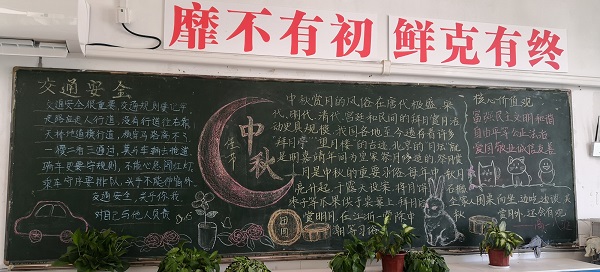 靡不有初 鲜克有终
交通安全
交通安全很重要,交通规则要记牢
走路应走人行道,没有行道往右靠
天桥地道横行道,横穿马路离不了
一慢二看三通过,莫与车辆去抢道
骑车更要守规则,不能心急闯红灯
乘车秩序要排队,头手不能伸窗外
交通安全,关乎你我
对自己与他人负责
中秋
佳节
中秋赏月的风俗在唐代极盛,宋
代、明代、清代、宫廷和民间的拜月赏月活
动更具规模。我国各地至今遗存着许多
“拜月亭”“望月楼”的古迹。北京的月坛就
是明嘉靖年间为皇家祭月修造的。祭月赏
月是中秋的重要习俗。每年中秋,
亮升起,于露天设案,将月饼、石榴、
枣子等瓜果供于桌案上,拜月后,
全家人围桌而坐,边吃边谈,共
赏明月。
团圆
核心价值观
富强民主文明和谐
自由平等公正法治
爱国敬业诚信友善